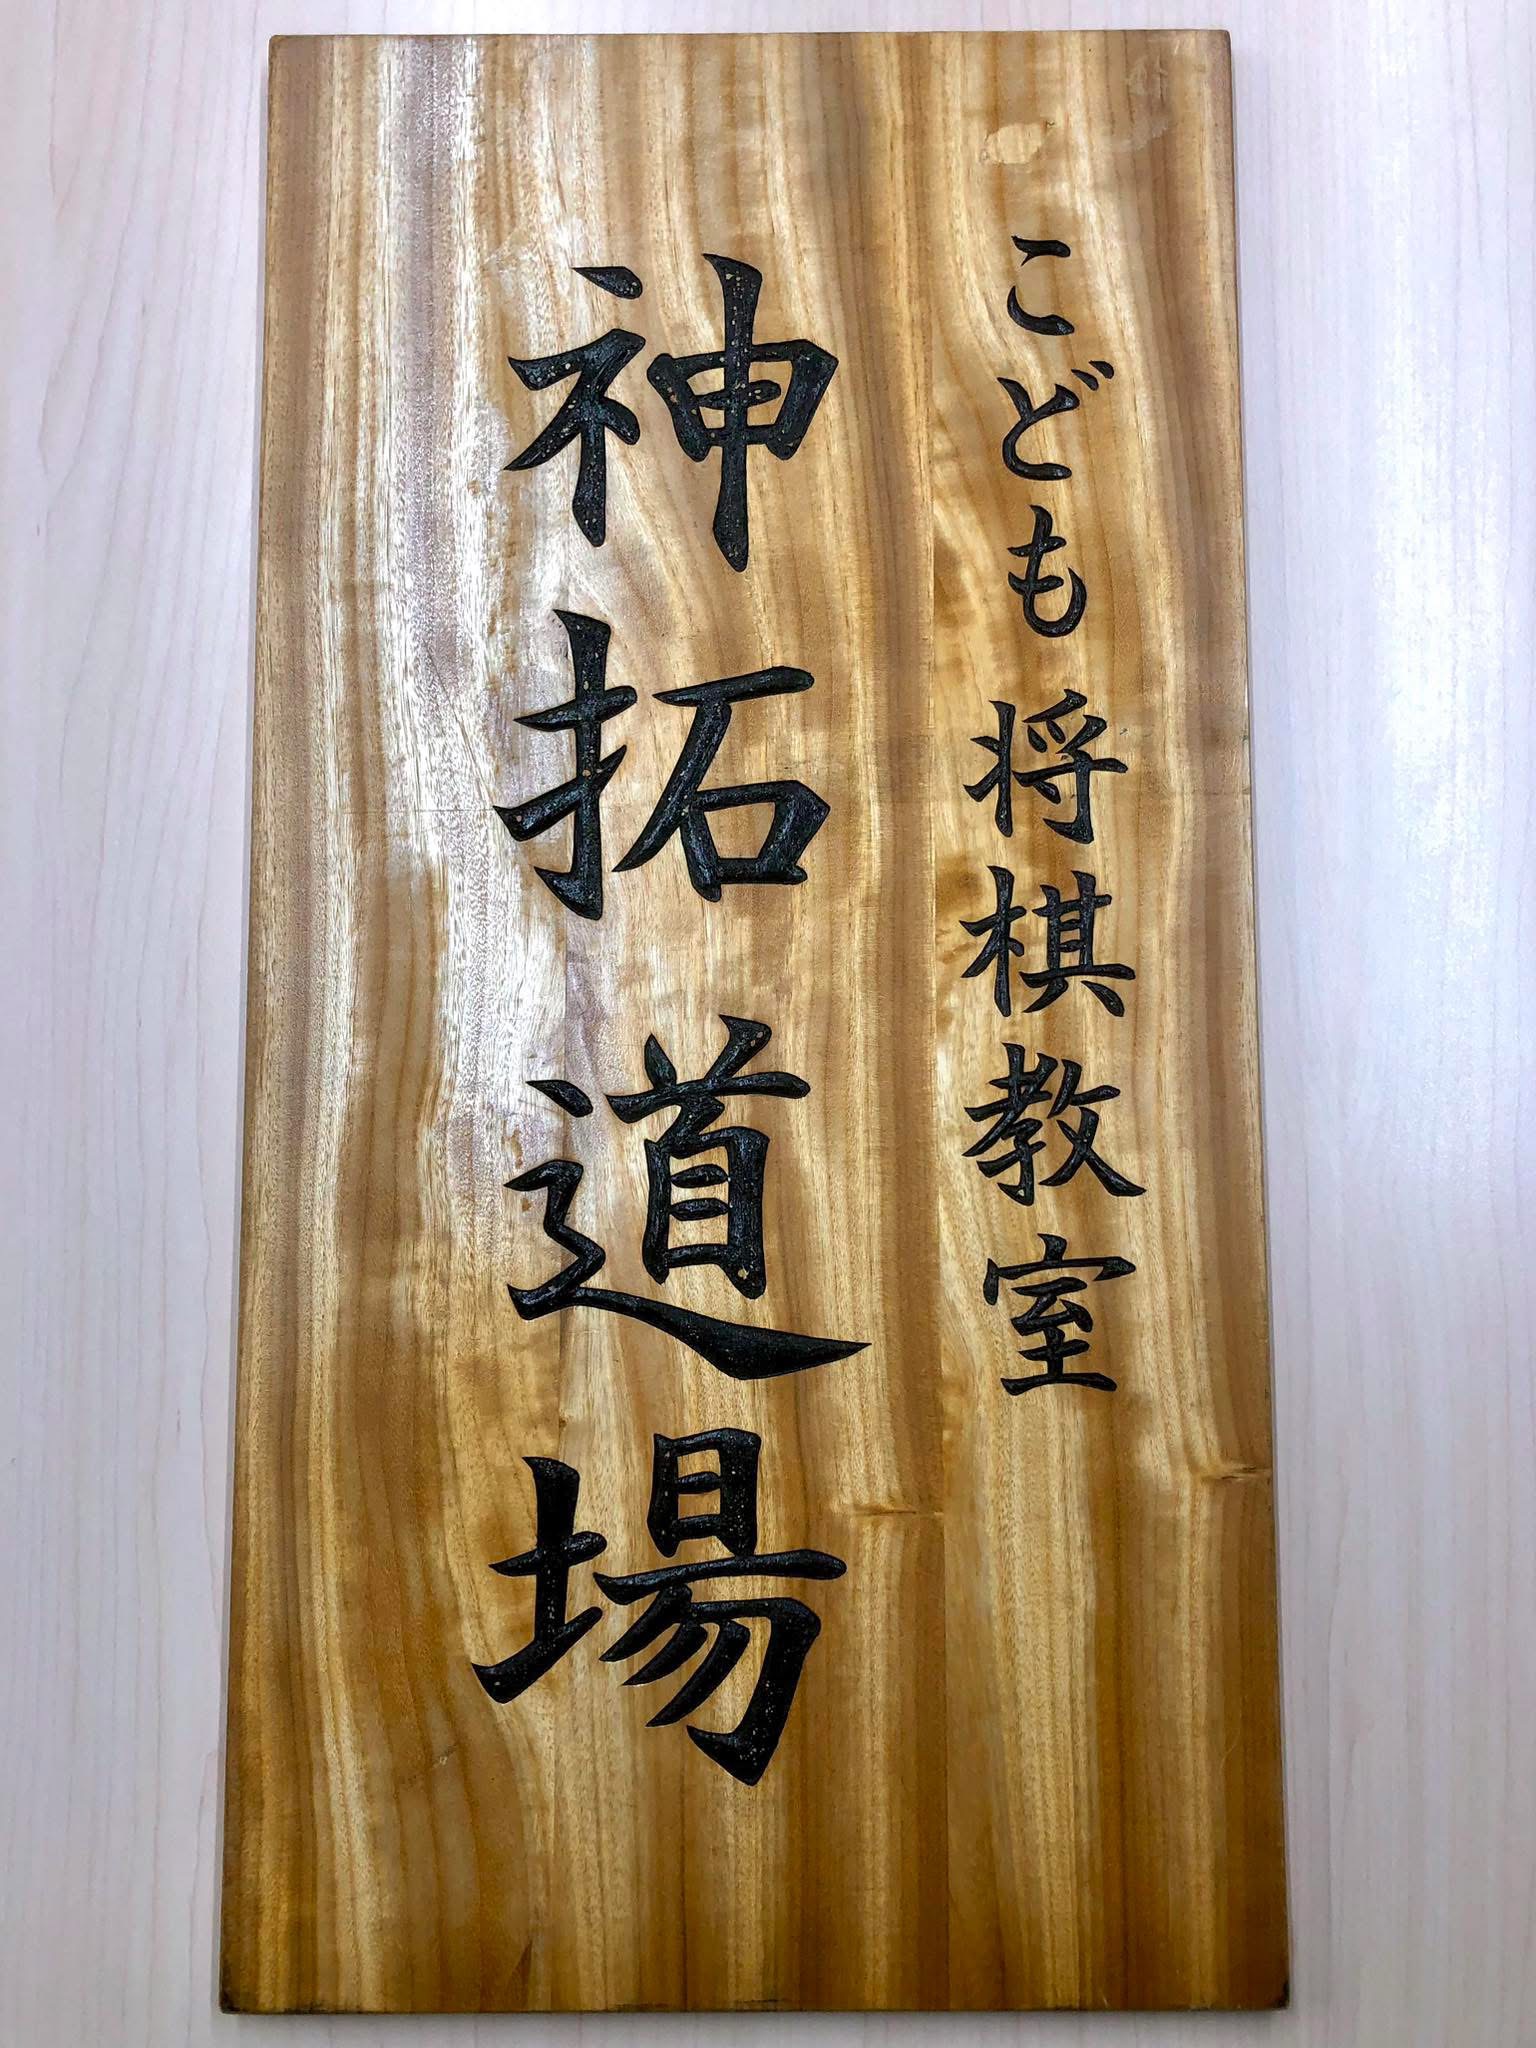 こども将棋教室
神拓道場